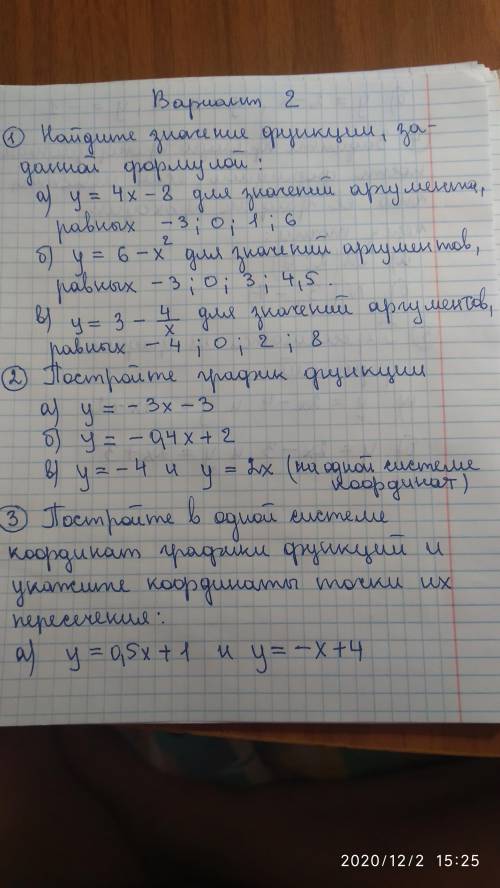 Вариант 2
① Найдите значение функции, за-
данной формулой:
а) y = 4x - 8 для значений аргумента,
равных -3; 0; 1; 6
б) y = 6 - x² для значений аргументов,
равных -3; 0; 3; 4,5.
в) y = 3 - 4/x для значений аргументов,
равных -4; 0; 2; 8
② Постройте график функции
а) y = -3x - 3
б) y = -0,4x + 2
в) y = -4 и y = 2x (на одной системе
координат)
③ Постройте в одной системе
координат графики функций и
укажите координаты точки их
пересечения:
а) y = 0,5x + 1 и y = -x + 4
2020/12/2 15:25